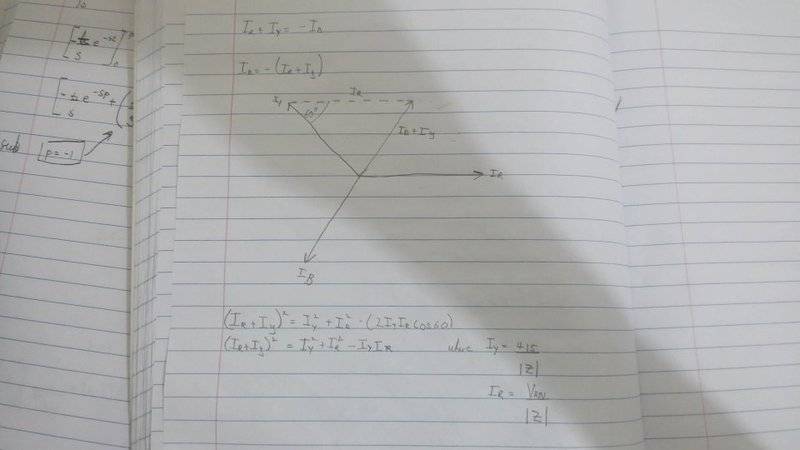 [-1/s e^-st]
[-1/s e^-sp + (
p = -1
I_R + I_Y = -I_B
I_B = -(I_R + I_y)
I_Y
I_R
60°
I_R + I_y
I_R
I_B
(I_R + I_y)² = I_y² + I_R² - (2I_Y I_R Cos60)
(I_R + I_y)² = I_y² + I_R² - I_Y I_R where I_y = 415
|Z|
I_R = V_RN
|Z|